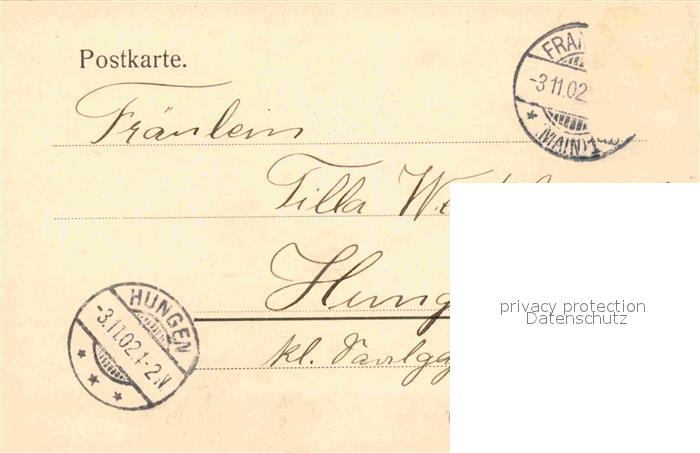 Postkarte.
FRAN
-3.11.02
* MAIN) 1
Fräulein
Tilla We
Hung
HUNGEN
-3.11.02.1-2.N.
* * *
kl.
privacy protection
Datenschutz